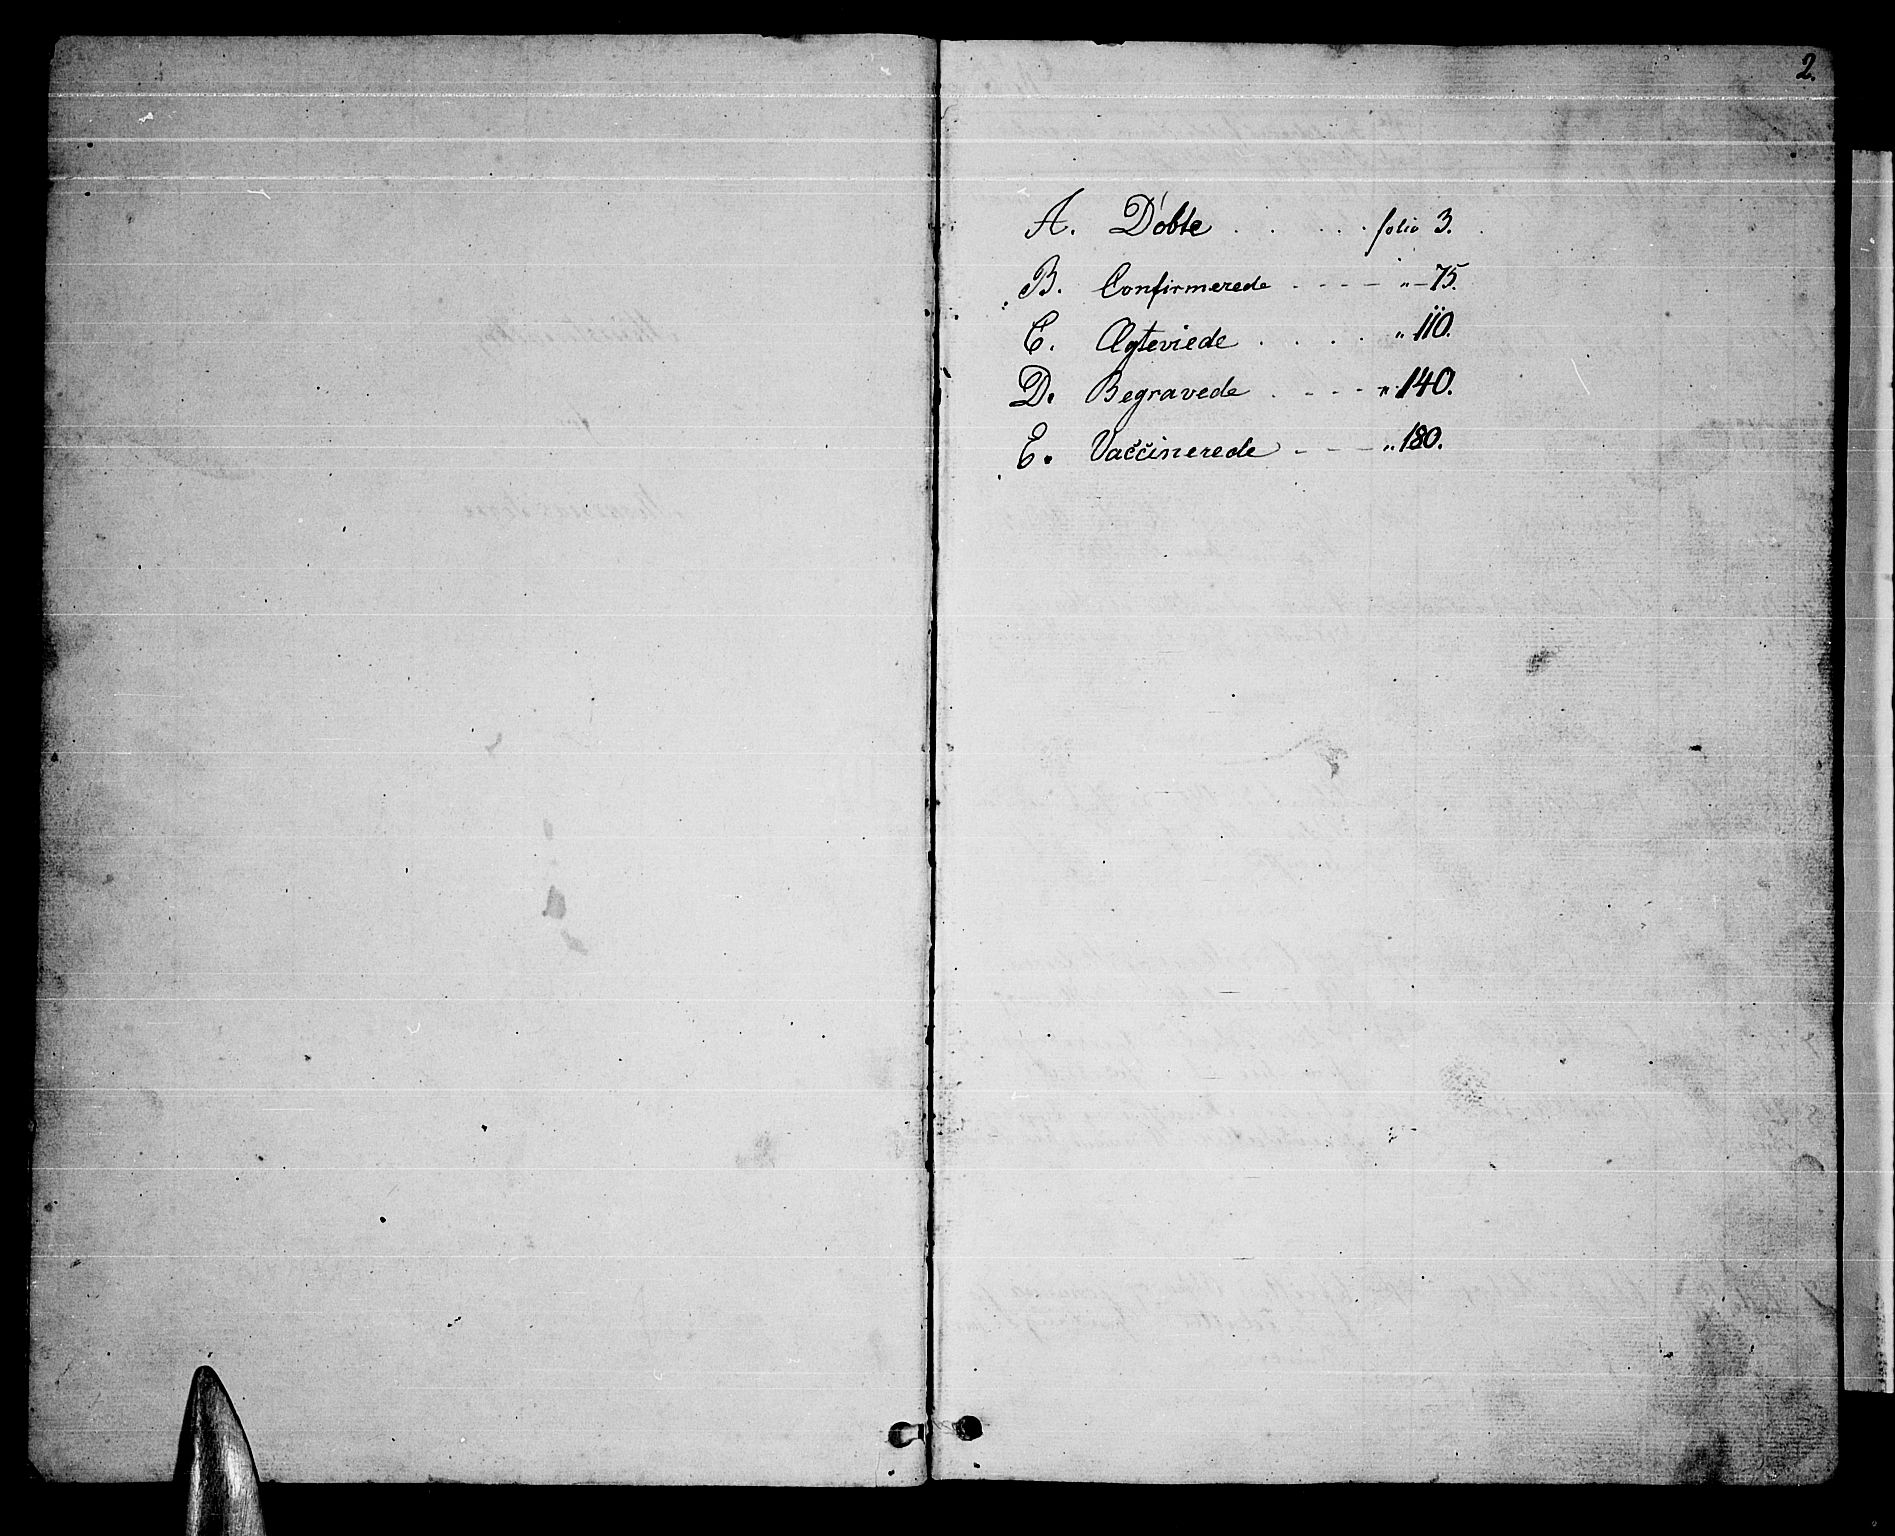 2.
A. Døbte . . . . . folio 3.
B. Confirmerede - - - - " - 75.
C. Ægteviede . . . . " 110.
D. Begravede . - - - " 140.
E. Vaccinerede - - - " 180.